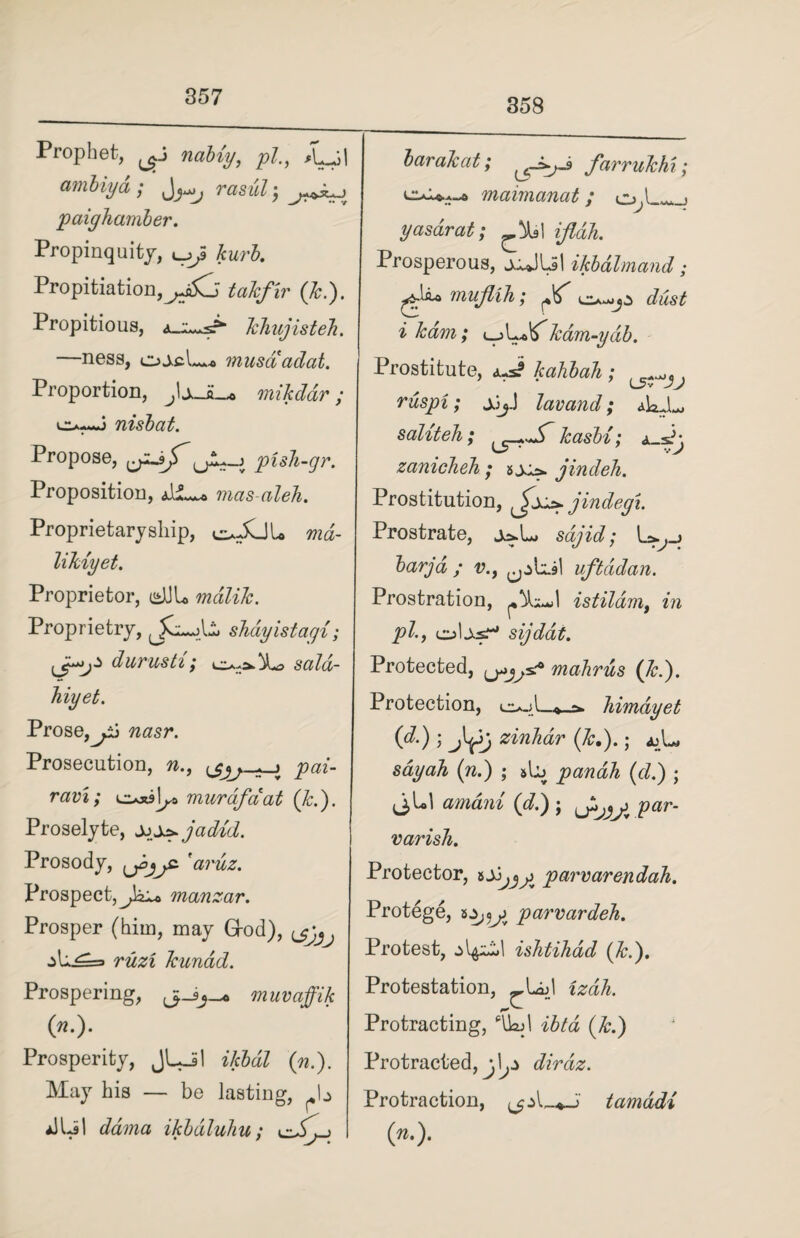 357
Prophet, نبی nabíy, pl., انبیاء
ambiyá ; رسول rasúl ; پیغمبر
paighamber.
Propinquity, قرب kurb.
Propitiation, تکفیر takfír (k.).
Propitious, خجسته khujisteh.
—ness, مساعدت musá'adat.
Proportion, مقدار mikdár ;
نسبت nisbat.
Propose, پیش گرفتن písh-gr.
Proposition, مسئله mas-aleh.
Proprietaryship, مالکیت má-
likíyet.
Proprietor, مالك málik.
Proprietry, شایستگی sháyistagí ;
درستی durustí ; صلاحیت salá-
híyet.
Prose, نثر nasr.
Prosecution, n., پیروی pai-
raví ; مرافعت muráfa'at (k.).
Proselyte, جدید jadíd.
Prosody, عروض 'arúz.
Prospect, منظر manzar.
Prosper (him, may God), روزی
کناد rúzí kunád.
Prospering, موفق muvaffik
(n.).
Prosperity, اقبال ikbál (n.).
May his — be lasting, دام
اقباله dáma ikbáluhu ; برکت
358
barakat ; فرخی farrukhí ;
میمنت maimanat ; یسارت
yasárat ; افلاح ifláh.
Prosperous, اقبالمند ikbálmand ;
مفلح muflih ; دوست کام dúst
i kám ; کامیاب kám-yáb.
Prostitute, قحبه kahbah ; روسپی
rúspí ; لوند lavand ; سلیطه
salíteh ; کسبی kasbí ; زنچه
zanicheh ; جنده jindeh.
Prostitution, جندگی jindegí.
Prostrate, ساجد sájid ; برجا
barjá ; v., افتادن uftádan.
Prostration, استلام istilám, in
pl., سجدات sijdát.
Protected, محروس mahrús (k.).
Protection, حمایت himáyet
(d.) ; زنهار zinhár (k.). ; سایه
sáyah (n.) ; پناه panáh (d.) ;
امانی amání (d.) ; پرورش par-
varish.
Protector, پرورنده parvarendah.
Protégé, پرورده parvardeh.
Protest, اشتهاد ishtihád (k.).
Protestation, ایضاح ízáh.
Protracting, ابطاء ibtá (k.)
Protracted, دراز diráz.
Protraction, تمادی tamádí
(n.).